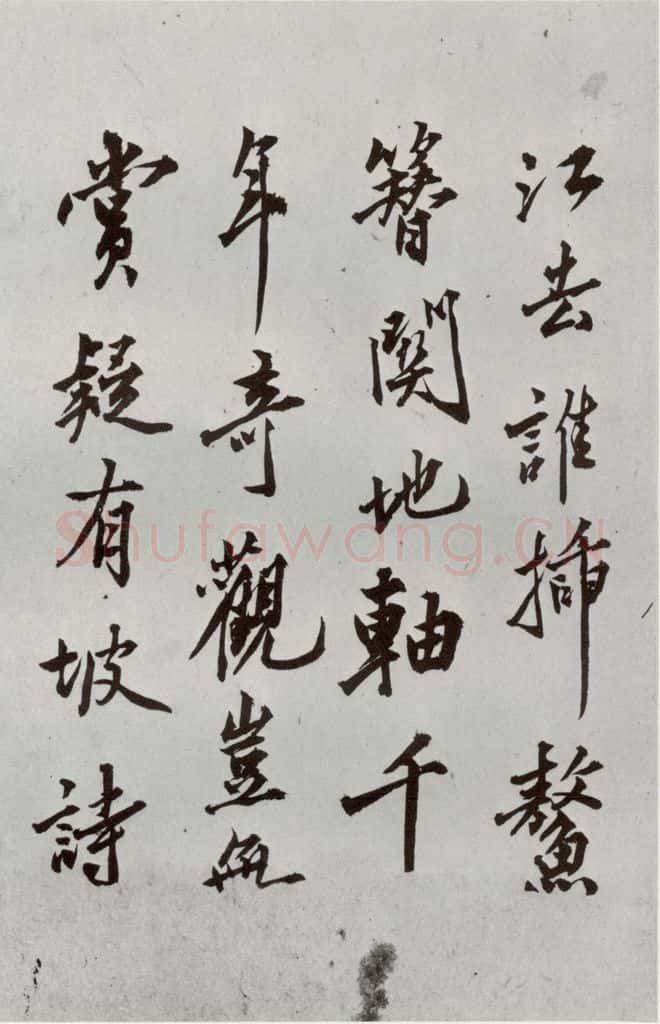 江去誰插鰲
簪關地軸千
年奇觀豈無
賞疑有坡詩
Shufawang.CN